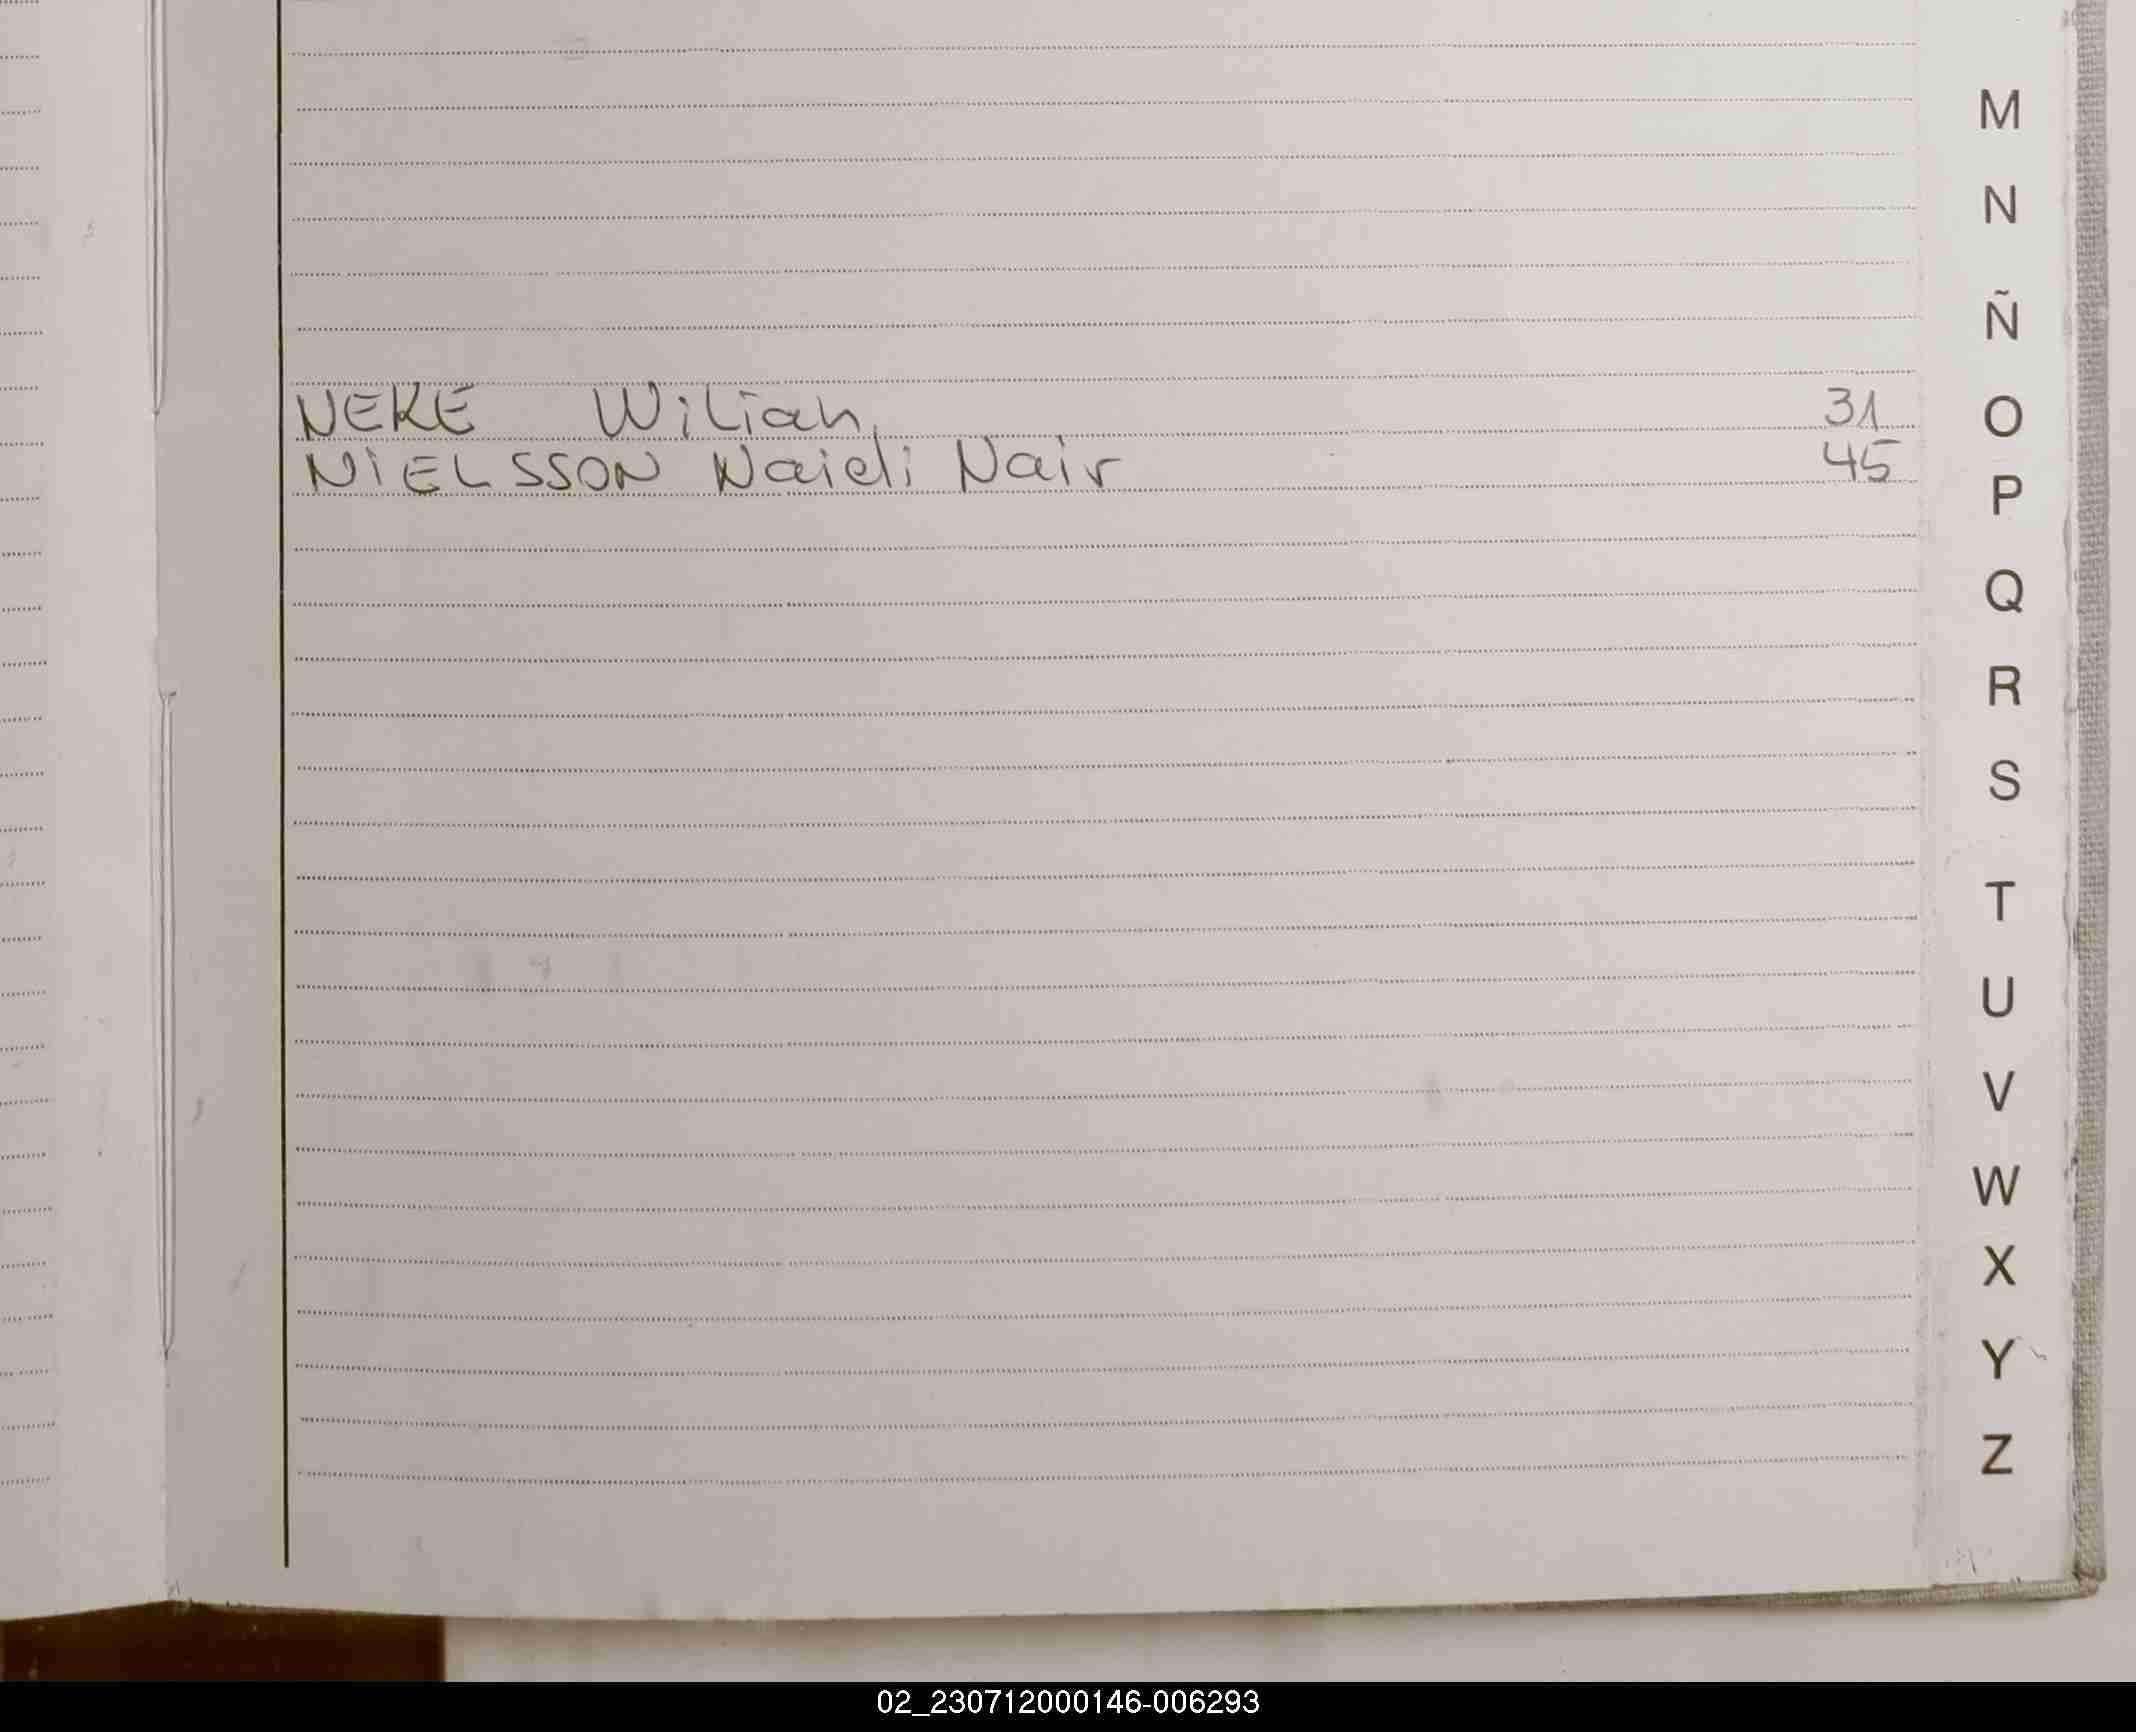 M
N
Ñ
NEKE Wilian 31
O
NIELSSON Naidi Nair 45
P
Q
R
S
T
U
V
W
X
Y
Z
02_230712000146-006293